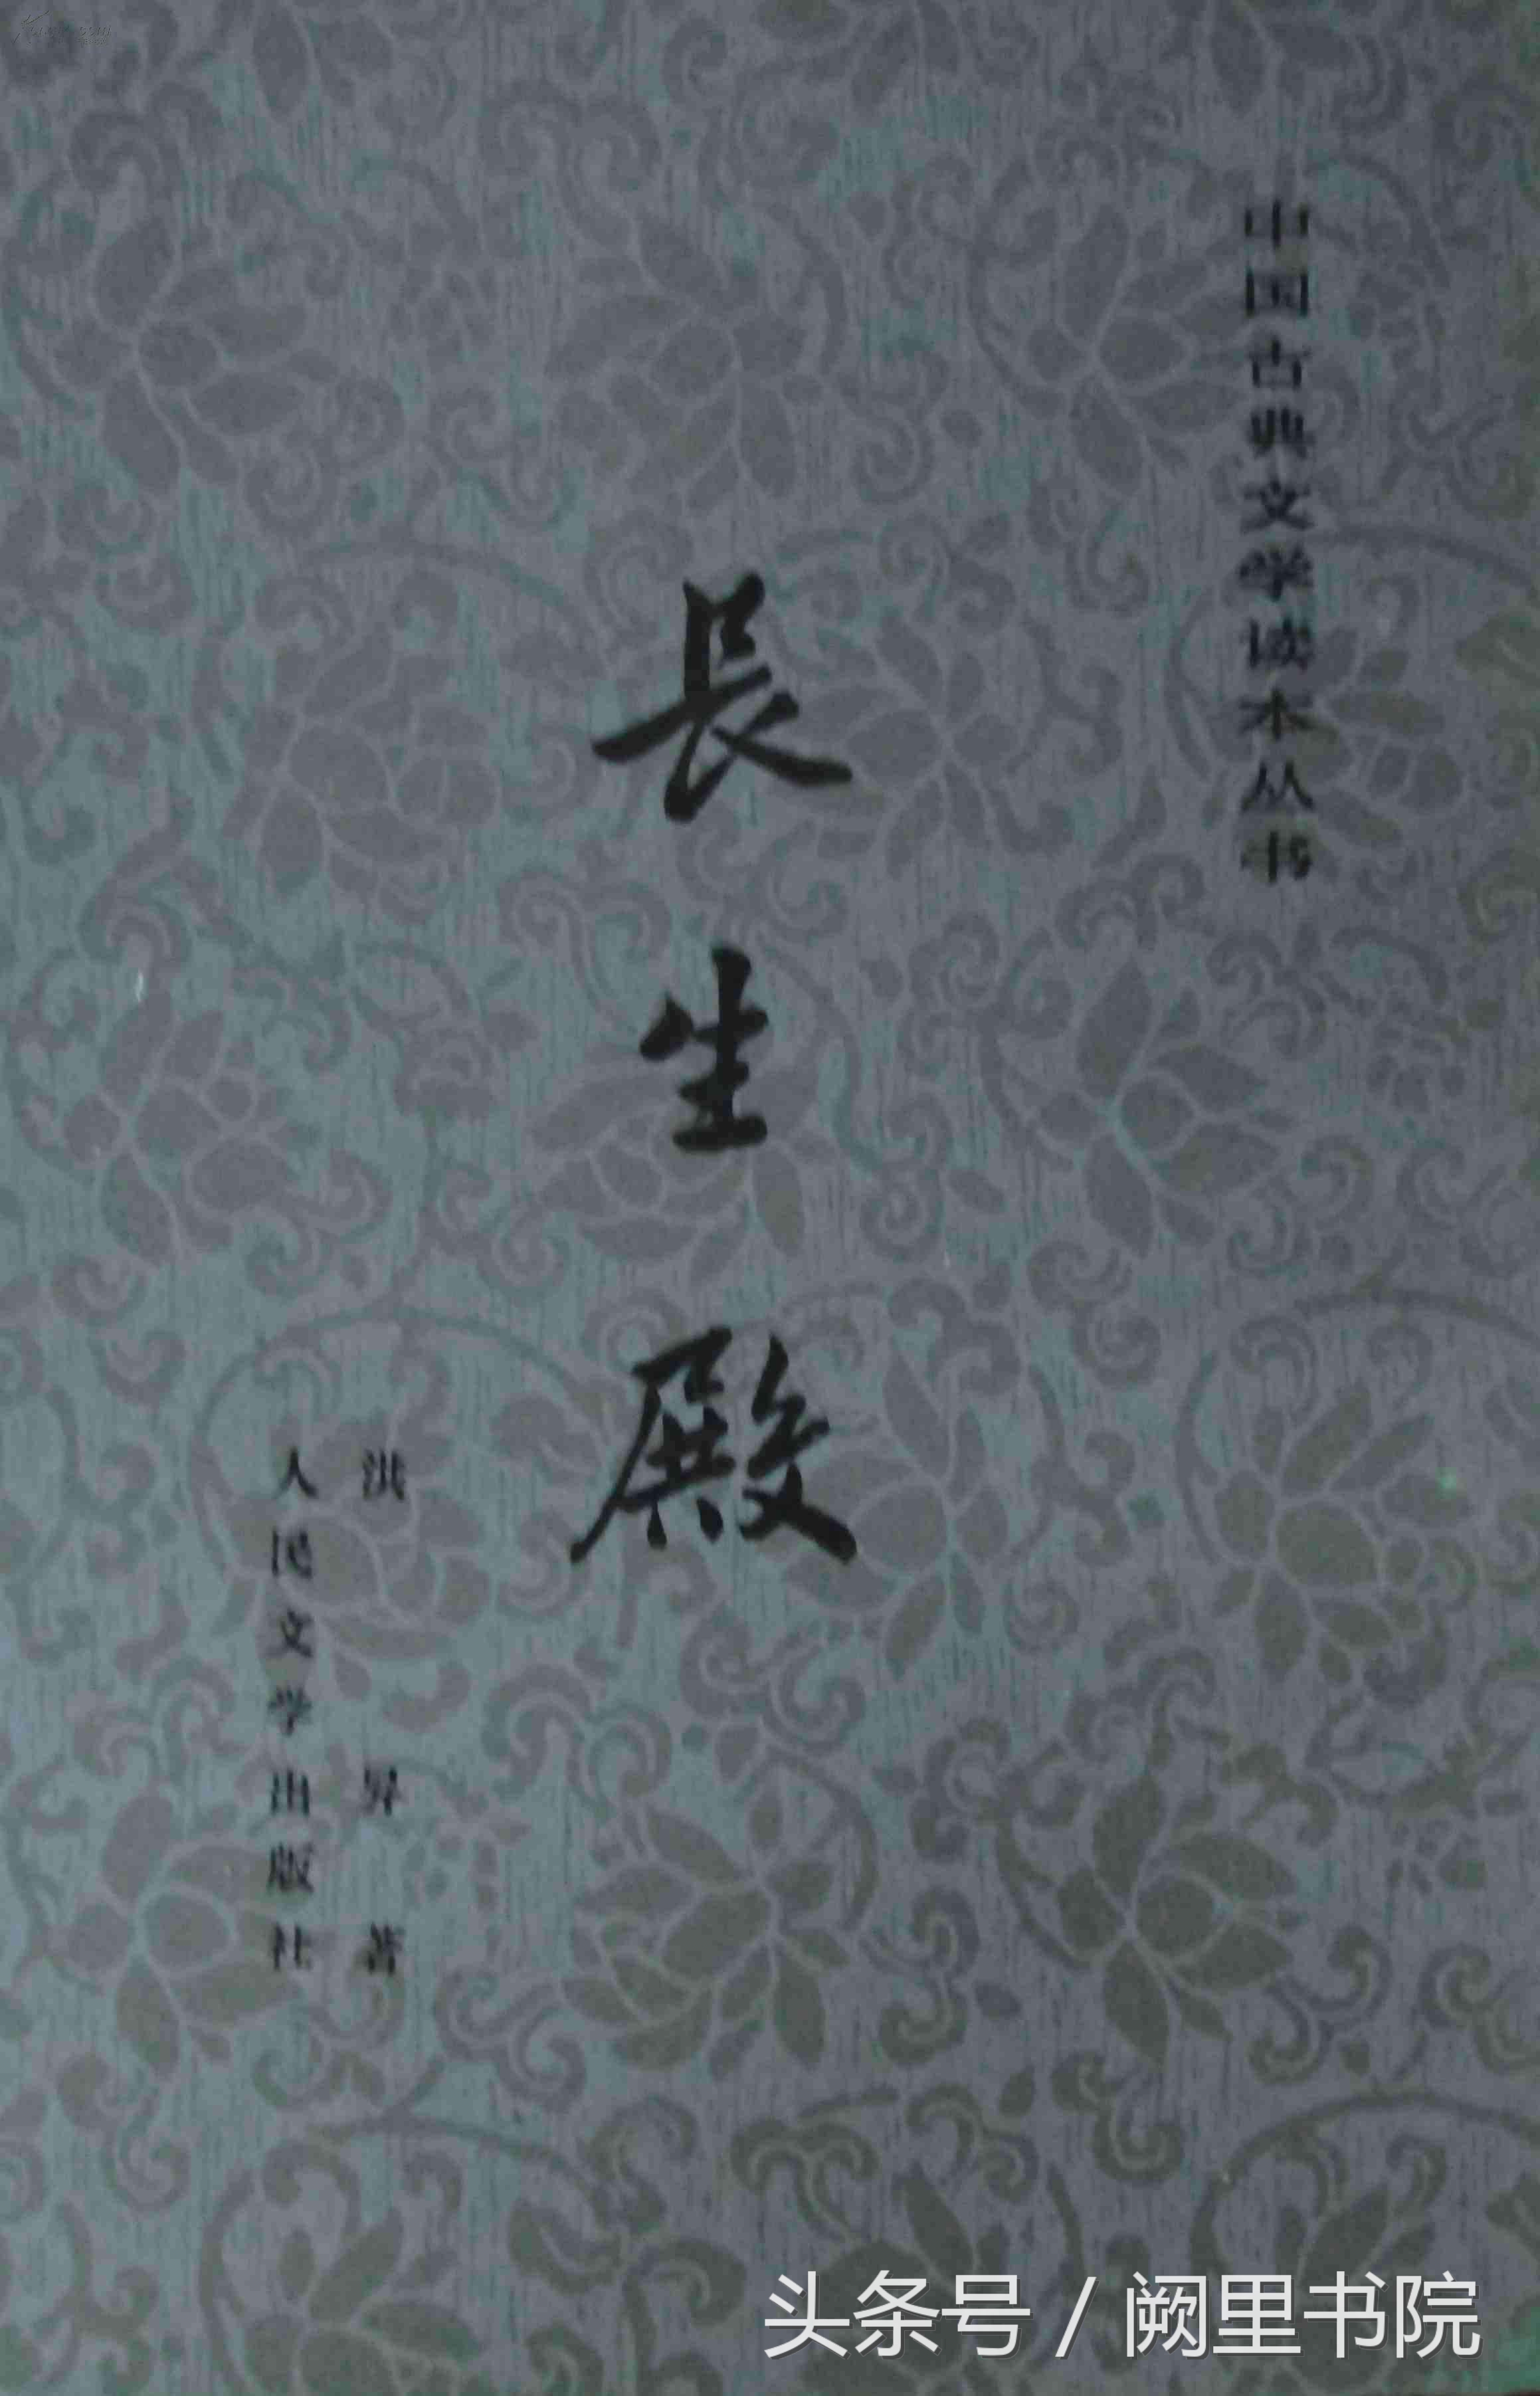 中国古典文学读本丛书
長生殿
洪昇著
人民文学出版社
头条号 / 阙里书院